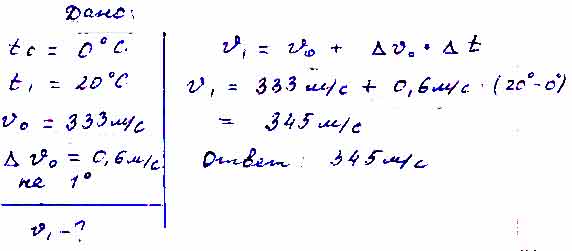 Дано:
t₀ = 0°С.
t₁ = 20°С
v₀ = 333 м/с
Δv₀ = 0,6 м/с
на 1°
v₁ - ?
v₁ = v₀ + Δv₀ · Δt
v₁ = 333 м/с + 0,6 м/с · (20° - 0°)
= 345 м/с
Ответ: 345 м/с